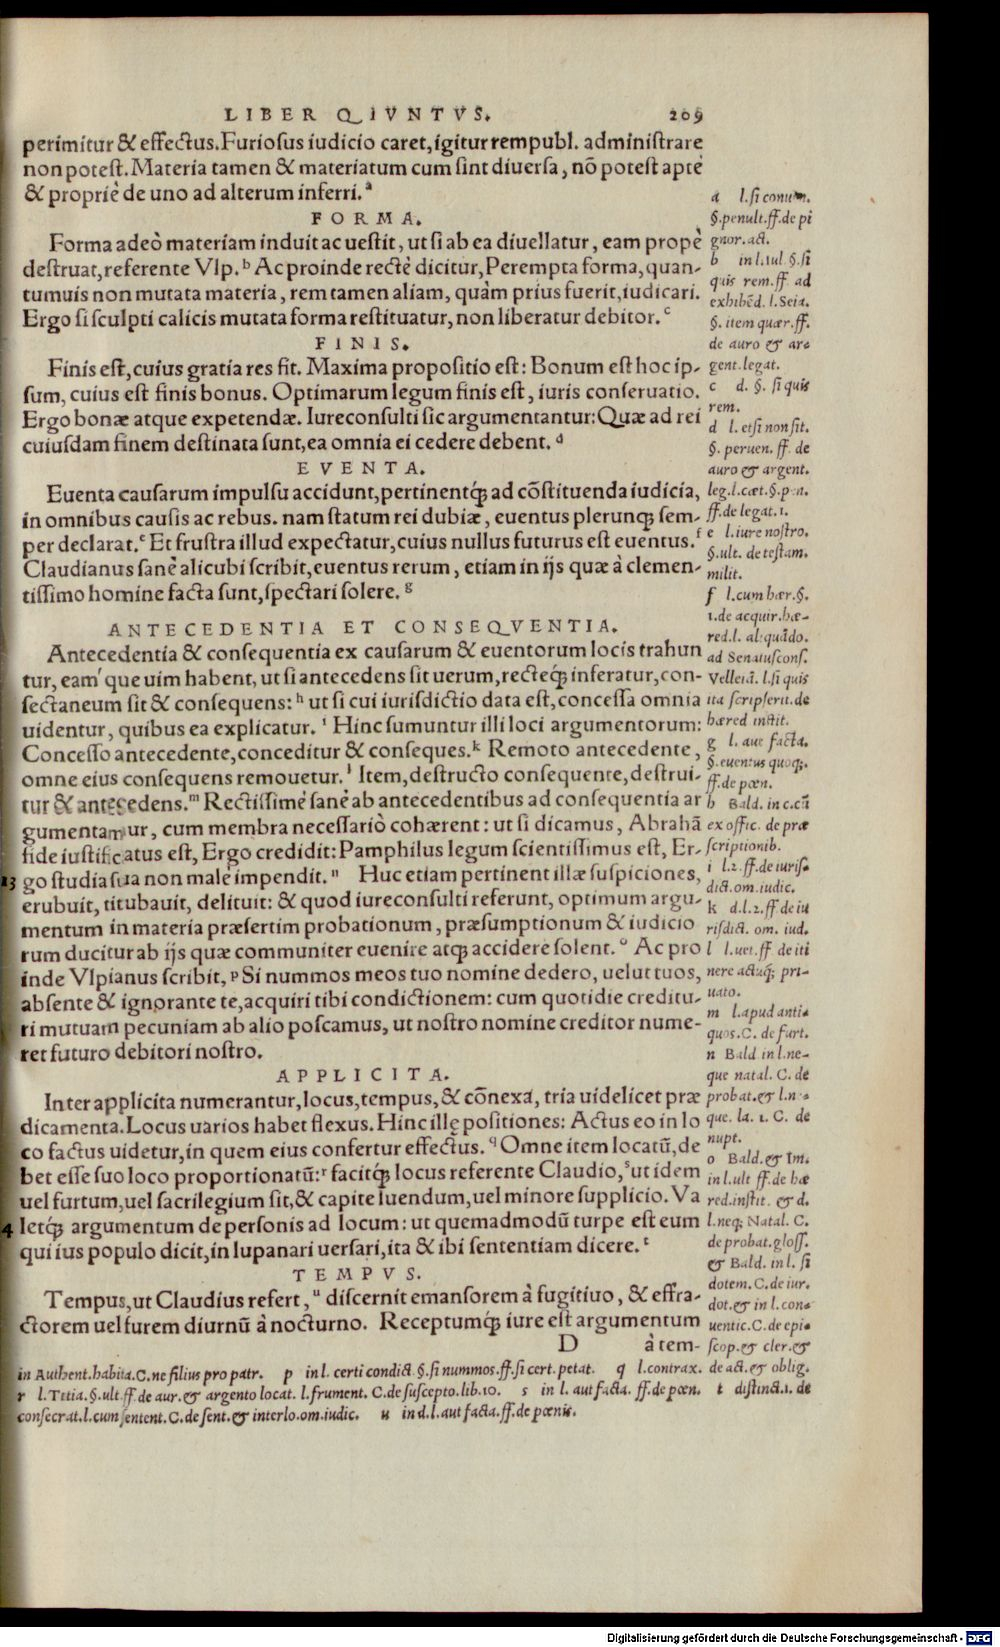 LIBER QIVNTVS.
209
perimitur & effectus. Furiosus iudicio caret, igitur rempubl. administrare
non potest. Materia tamen & materiatum cum sint diuersa, nõ potest aptè
& propriè de uno ad alterum inferri.ª
FORMA.
Forma adeò materiam induit ac uestit, ut si ab ea diuellatur, eam propè
destruat, referente Vlp.ᵇ Ac proinde rectè dicitur, Perempta forma, quan-
tumuis non mutata materia, rem tamen aliam, quàm prius fuerit, iudicari.
Ergo si sculpti calicis mutata forma restituatur, non liberatur debitor.ᶜ
FINIS.
Finis est, cuius gratia res fit. Maxima propositio est: Bonum est hoc ip-
sum, cuius est finis bonus. Optimarum legum finis est, iuris conseruatio.
Ergo bonæ atque expetendæ. Iureconsulti sic argumentantur: Quæ ad rei
cuiusdam finem destinata sunt, ea omnia ei cedere debent.ᵈ
EVENTA.
Euenta causarum impulsu accidunt, pertinentq́; ad cõstituenda iudicia,
in omnibus causis ac rebus. nam statum rei dubiæ, euentus plerunq; sem-
per declarat.ᵉ Et frustra illud expectatur, cuius nullus futurus est euentus.ᶠ
Claudianus sanè alicubi scribit, euentus rerum, etiam in ijs quæ à clemen-
tissimo homine facta sunt, spectari solere.ᵍ
ANTECEDENTIA ET CONSEQVENTIA.
Antecedentia & consequentia ex causarum & euentorum locis trahun
tur, eam'que uim habent, ut si antecedens sit uerum, recteq́; inferatur, con-
sectaneum sit & consequens:ʰ ut si cui iurisdictio data est, concessa omnia
uidentur, quibus ea explicatur.ⁱ Hinc sumuntur illi loci argumentorum:
Concesso antecedente, conceditur & conseques.ᵏ Remoto antecedente,
omne eius consequens remouetur.ˡ Item, destructo consequente, destrui-
tur & antecedens.ᵐ Rectissimè sanè ab antecedentibus ad consequentia ar
gumentamur, cum membra necessariò cohærent: ut si dicamus, Abrahã
fide iustificatus est, Ergo credidit: Pamphilus legum scientissimus est, Er-
13 go studia sua non male impendit.ⁿ Huc etiam pertinent illæ suspiciones,
erubuit, titubauit, delituit: & quod iureconsulti referunt, optimum argu-
mentum in materia præsertim probationum, præsumptionum & iudicio
rum ducitur ab ijs quæ communiter euenire atq; accidere solent.ᵒ Ac pro
inde Vlpianus scribit,ᵖ Si nummos meos tuo nomine dedero, uelut tuos,
absente & ignorante te, acquiri tibi condictionem: cum quotidie creditu-
ri mutuam pecuniam ab alio poscamus, ut nostro nomine creditor nume-
ret futuro debitori nostro.
APPLICITA.
Inter applicita numerantur, locus, tempus, & cõnexa, tria uidelicet præ
dicamenta. Locus uarios habet flexus. Hinc illę positiones: Actus eo in lo
co factus uidetur, in quem eius confertur effectus.q Omne item locatũ, de
bet esse suo loco proportionatũ:ʳ facitq́; locus referente Claudio,ˢ ut idem
uel furtum, uel sacrilegium sit, & capite luendum, uel minore supplicio. Va
4 letq́; argumentum de personis ad locum: ut quemadmodũ turpe est eum
qui ius populo dicit, in lupanari uersari, ita & ibi sententiam dicere.ᵗ
TEMPVS.
Tempus, ut Claudius refert,ᵘ discernit emansorem à fugitiuo, & effra-
ctorem uel furem diurnũ à nocturno. Receptumq́; iure est argumentum
D à tem-
a l. si conuen.
§. penult. ff. de pi
gnor. act.
b in l. Iul. §. si
quis rem. ff. ad
exhibẽd. l. Seia.
§. item quær. ff.
de auro & ar-
gent. legat.
c d. §. si quis
rem.
d l. etsi non sit.
§. peruen. ff. de
auro & argent.
leg. l. cæt. §. pen.
ff. de legat. 1.
e l. iure nostro.
§. ult. de testam.
milit.
f l. cum hær. §.
1. de acquir. hæ-
red. l. aliquãdo.
ad Senatusconf.
Velleiã. l. si quis
ita scripserit. de
hæred instit.
g l. aut facta.
§. euentus quoq;.
ff. de pœn.
h Bald. in c. cũ
ex offic. de præ
scriptionib.
i l. 2. ff. de iuris-
dict. om. iudic.
k d. l. 2. ff. de iu
risdict. om. iud.
l l. uet. ff. de iti
nere actuq; pri-
uato.
m l. apud anti-
quos. C. de furt.
n Bald in l. ne-
que natal. C. de
probat. & l. ne-
que. la. 1. C. de
nupt.
o Bald. & Im.
in l. ult ff. de hæ
red. instit. & d.
l. neq; Natal. C.
de probat. gloss.
& Bald. in l. si
dotem. C. de iur.
dot. & in l. con-
uentic. C. de epi-
scop. & cler. &
in Authent. habita. C. ne filius pro patr. p in l. certi condict. §. si nummos. ff. si cert. petat. q l. contrax. de act. & oblig.
r l. Titia. §. ult. ff. de aur. & argento locat. l. frument. C. de suscepto. lib. 10. s in l. aut facta. ff. de pœn. t distinct. 1. de
consecrat. l. cum sentent. C. de sent. & interlo. om. iudic. u in d. l. aut facta. ff. de pœnis.
Digitalisierung gefördert durch die Deutsche Forschungsgemeinschaft - DFG